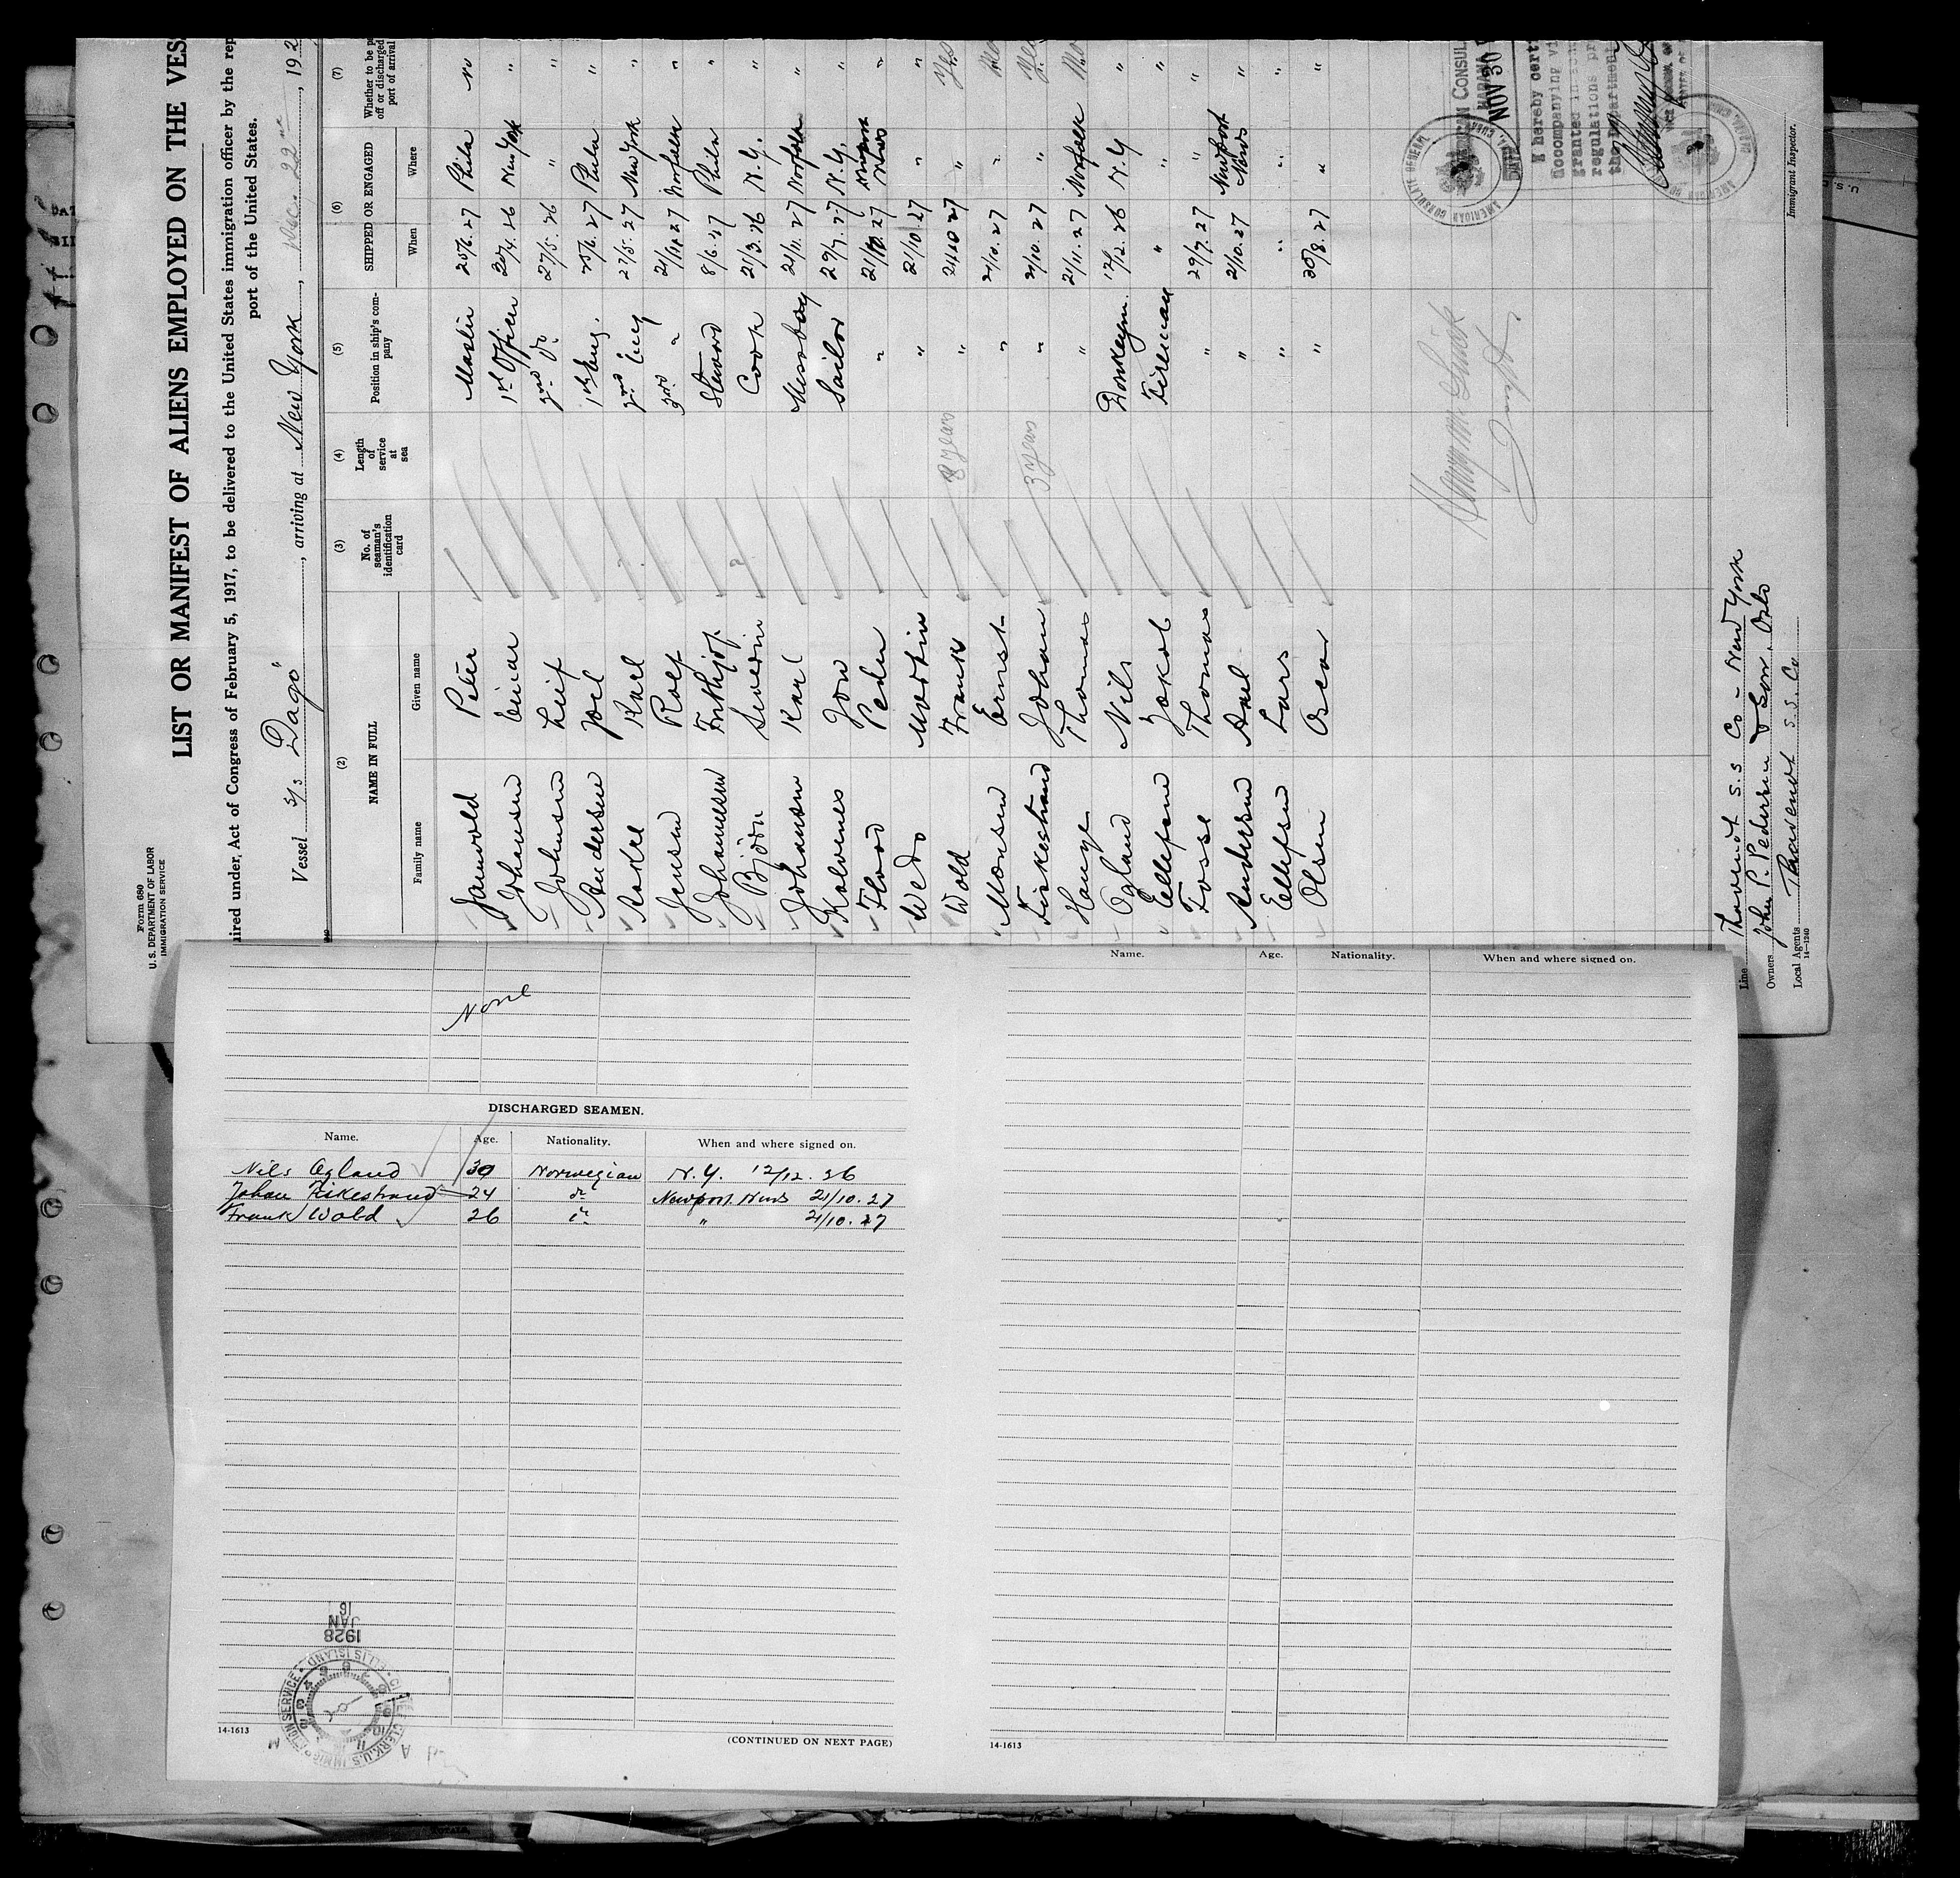 Form 680
U. S. DEPARTMENT OF LABOR
IMMIGRATION SERVICE
LIST OR MANIFEST OF ALIENS EMPLOYED ON THE VES
uired under, Act of Congress of February 5, 1917, to be delivered to the United States immigration officer by the rep
port of the United States.
Vessel S/s "Dago", arriving at New York, Dec. 22nd, 192
(2) (3) (4) (5) (6) (7)
NAME IN FULL No. of seaman's identification card Length of service at sea Position in ship's company SHIPPED OR ENGAGED Whether to be p off or discharged port of arrival
Family name Given name When Where
Peter Master 25/6. 27 Phila no
Johansen Einar 1st Officer 20/4. 26 New York "
Johnsen Leif 2nd do 27/5. 26 " "
Andersen Joel 1st Eng. 25/6. 27 Phila "
Aakre Karl 2nd Eng 27/5. 27 New York "
Jensen Rolf 3rd " 21/11. 27 Norfolk "
Johannesen Frithjof Steward 8/6. 27 Phila "
Bjørn Severin Cook 21/3. 26 N.Y. "
Johansen Karl Messboy 21/11. 27 Norfolk "
Kalvenes Jon Sailor 29/7. 27 N.Y. "
Flood Peder " 21/10. 27 Newport News "
Martin " 21/10. 27 " "
Wold Frank 8 years " 21/10 27 " Yes
Monsen Ernest " 21/10. 27 " No
Fiskestrand Johan 3 years " 21/10. 27 " Yes
Hauge Thomas " 21/11. 27 Norfolk No
Ogland Nils Donkeym. 12/12. 26 N.Y "
Ellefsen Jakob Fireman " " "
Fosse Thomas " 29/7. 27 " "
Andersen Axel " 21/10. 27 Newport News "
Ellefsen Lars " " " "
Olsen Oscar " 30/8. 27 " "
AMERICAN CONSULATE GENERAL
AMERICAN CONSUL
HABANA
NOV 30
DATE
I hereby certi
accompanying vi
granted in
regulations pr
the Department
Immigrant Inspector.
Line Thorvendt S.S Co - New York
Owners John P. Pedersen & Son, Oslo
Local Agents S.S. Co
14-1240
None
DISCHARGED SEAMEN.
Name. Age. Nationality. When and where signed on.
Nils Ogland 30 Norwegian N.Y. 12/12. 26
Johan Fiskestrand 24 do Newport News 21/10. 27
Frank Wold 26 do " 21/10. 27
1928
JAN
16
ELLIS ISLAND
14-1613
(CONTINUED ON NEXT PAGE)
Name. Age. Nationality. When and where signed on.
14-1613